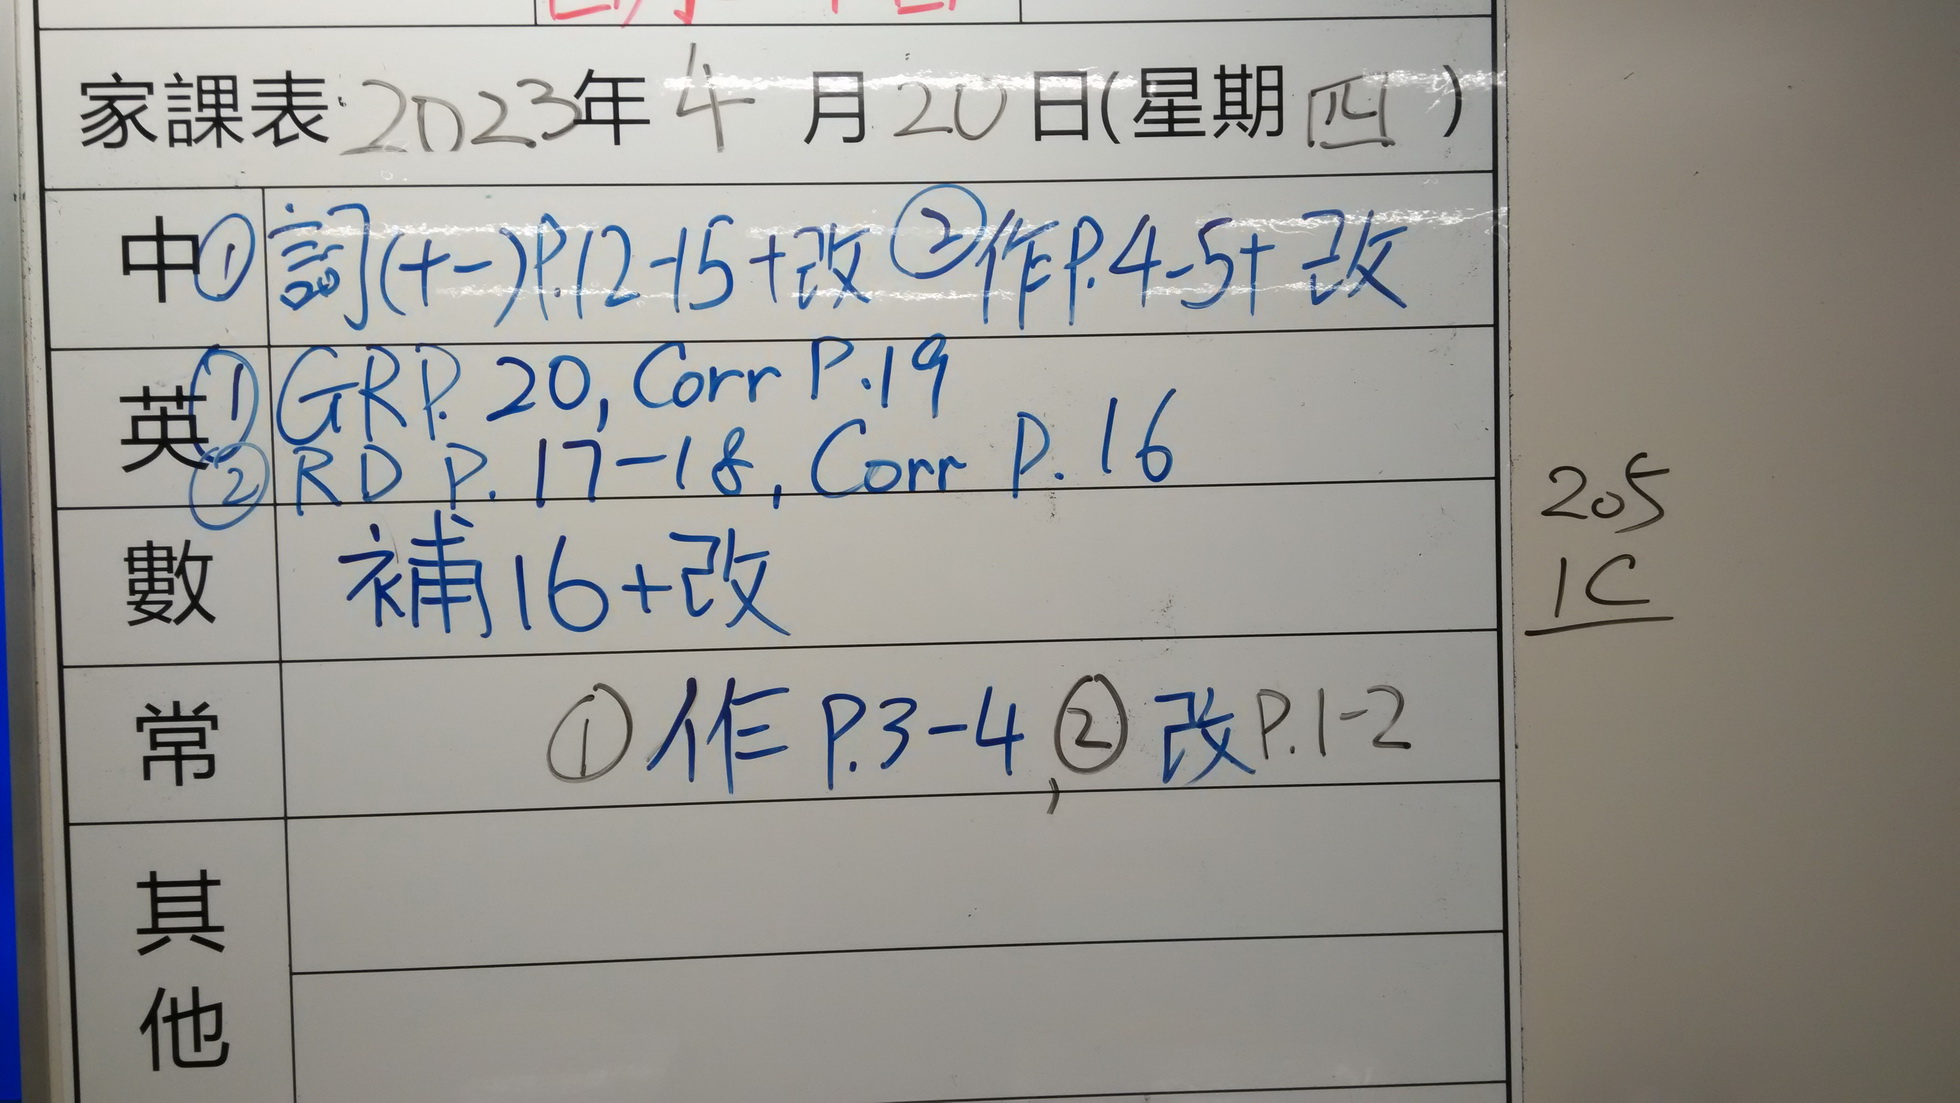 家課表:2023年4月20日(星期四)
中①詞(十一)P.12-15+改 ②作P.4-5+改
英①GR P. 20, Corr P.19
②RD P. 17-18, Corr P. 16
數 補16+改
常 ①作 P.3-4,②改P.1-2
其他
205
1C